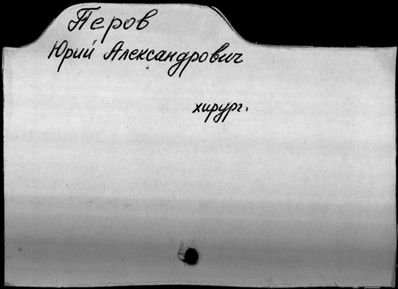 Перов
Юрий Александрович
хирург.